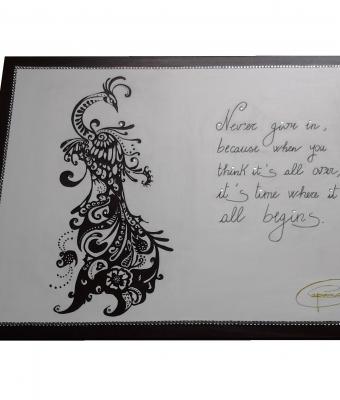 Never give in,
because when you
think it's all over,
it's time where it
all begins.